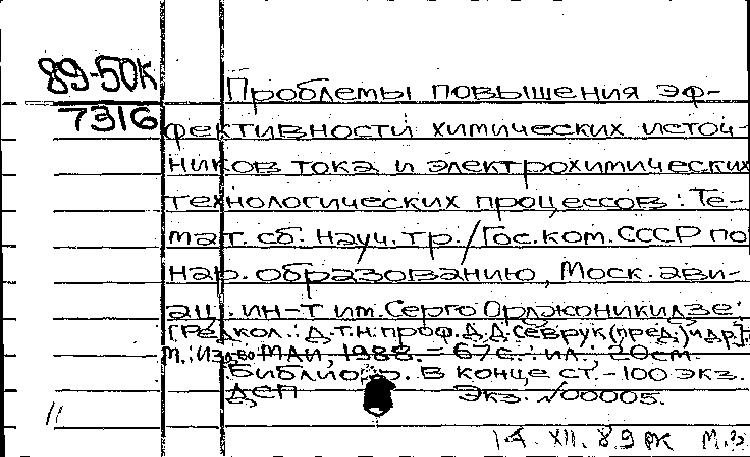 89-50К
7316
Проблемы повышения эф-
фективности химических источ-
ников тока и электрохимических
технологических процессов : Те-
мат. сб. науч. тр. / Гос. ком. СССР по
нар. образованию, Моск. ави-
ац. ин-т им. Серго Орджоникидзе;
[Редкол.: д.т.н. проф. Д.Д. Севрук (пред.) и др.].
М.: Изд-во МАИ, 1988. - 67 с. : ил.; 20 см.
Библиогр. в конце ст. - 100 экз.
ДСП Экз. №00005.
11
14. XII. 89 РК М.З